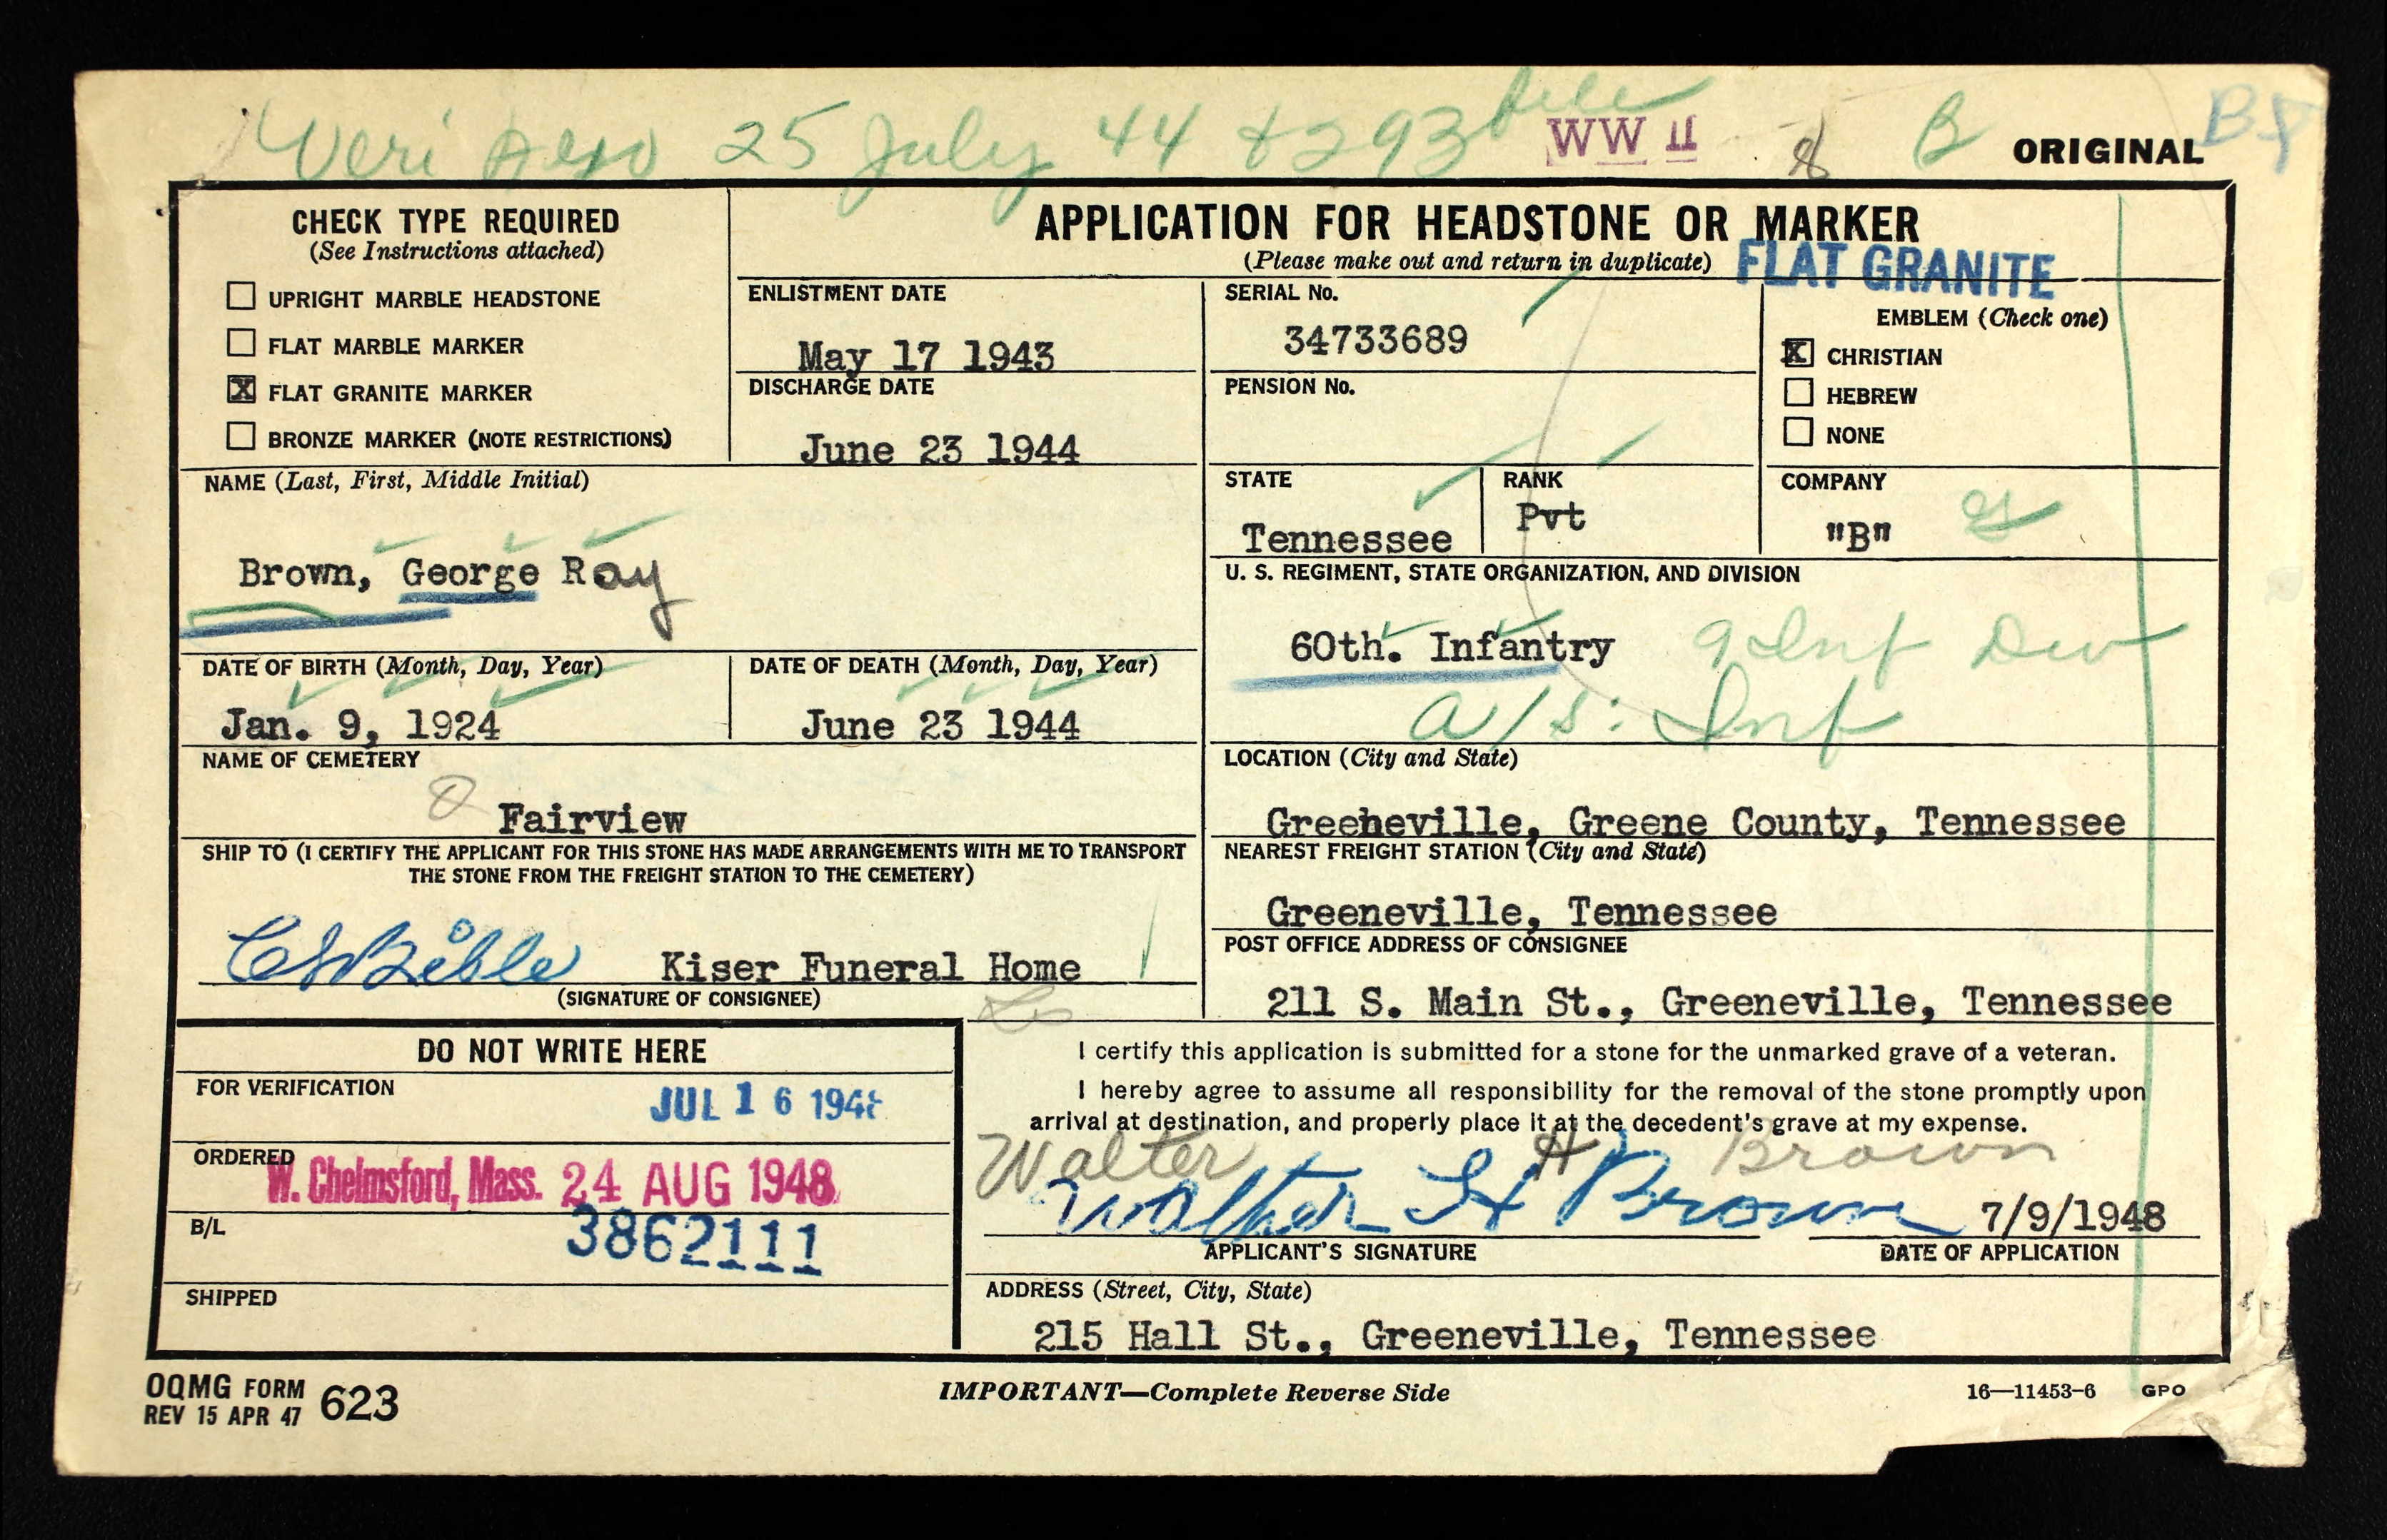 Veri 25 July 44 & 293
WW II
B
ORIGINAL
CHECK TYPE REQUIRED
(See Instructions attached)
☐ UPRIGHT MARBLE HEADSTONE
☐ FLAT MARBLE MARKER
☒ FLAT GRANITE MARKER
☐ BRONZE MARKER (NOTE RESTRICTIONS)
APPLICATION FOR HEADSTONE OR MARKER
(Please make out and return in duplicate)
FLAT GRANITE
ENLISTMENT DATE
May 17 1943
DISCHARGE DATE
June 23 1944
SERIAL No.
34733689
PENSION No.
EMBLEM (Check one)
☒ CHRISTIAN
☐ HEBREW
☐ NONE
NAME (Last, First, Middle Initial)
Brown, George Ray
STATE
Tennessee
RANK
Pvt
COMPANY
"B"
U. S. REGIMENT, STATE ORGANIZATION, AND DIVISION
60th. Infantry 9 Inf Div
a/s: Inf
DATE OF BIRTH (Month, Day, Year)
Jan. 9, 1924
DATE OF DEATH (Month, Day, Year)
June 23 1944
NAME OF CEMETERY
Fairview
LOCATION (City and State)
Greeneville, Greene County, Tennessee
SHIP TO (I CERTIFY THE APPLICANT FOR THIS STONE HAS MADE ARRANGEMENTS WITH ME TO TRANSPORT
THE STONE FROM THE FREIGHT STATION TO THE CEMETERY)
Bible Kiser Funeral Home
(SIGNATURE OF CONSIGNEE)
NEAREST FREIGHT STATION (City and State)
Greeneville, Tennessee
POST OFFICE ADDRESS OF CONSIGNEE
211 S. Main St., Greeneville, Tennessee
DO NOT WRITE HERE
FOR VERIFICATION
JUL 16 1948
ORDERED
W. Chelmsford, Mass. 24 AUG 1948
B/L
3862111
SHIPPED
I certify this application is submitted for a stone for the unmarked grave of a veteran.
I hereby agree to assume all responsibility for the removal of the stone promptly upon
arrival at destination, and properly place it at the decedent's grave at my expense.
Walter H Brown
Walter H Brown 7/9/1948
APPLICANT'S SIGNATURE
DATE OF APPLICATION
ADDRESS (Street, City, State)
215 Hall St., Greeneville, Tennessee
OQMG FORM
REV 15 APR 47
623
IMPORTANT—Complete Reverse Side
16—11453-6 GPO